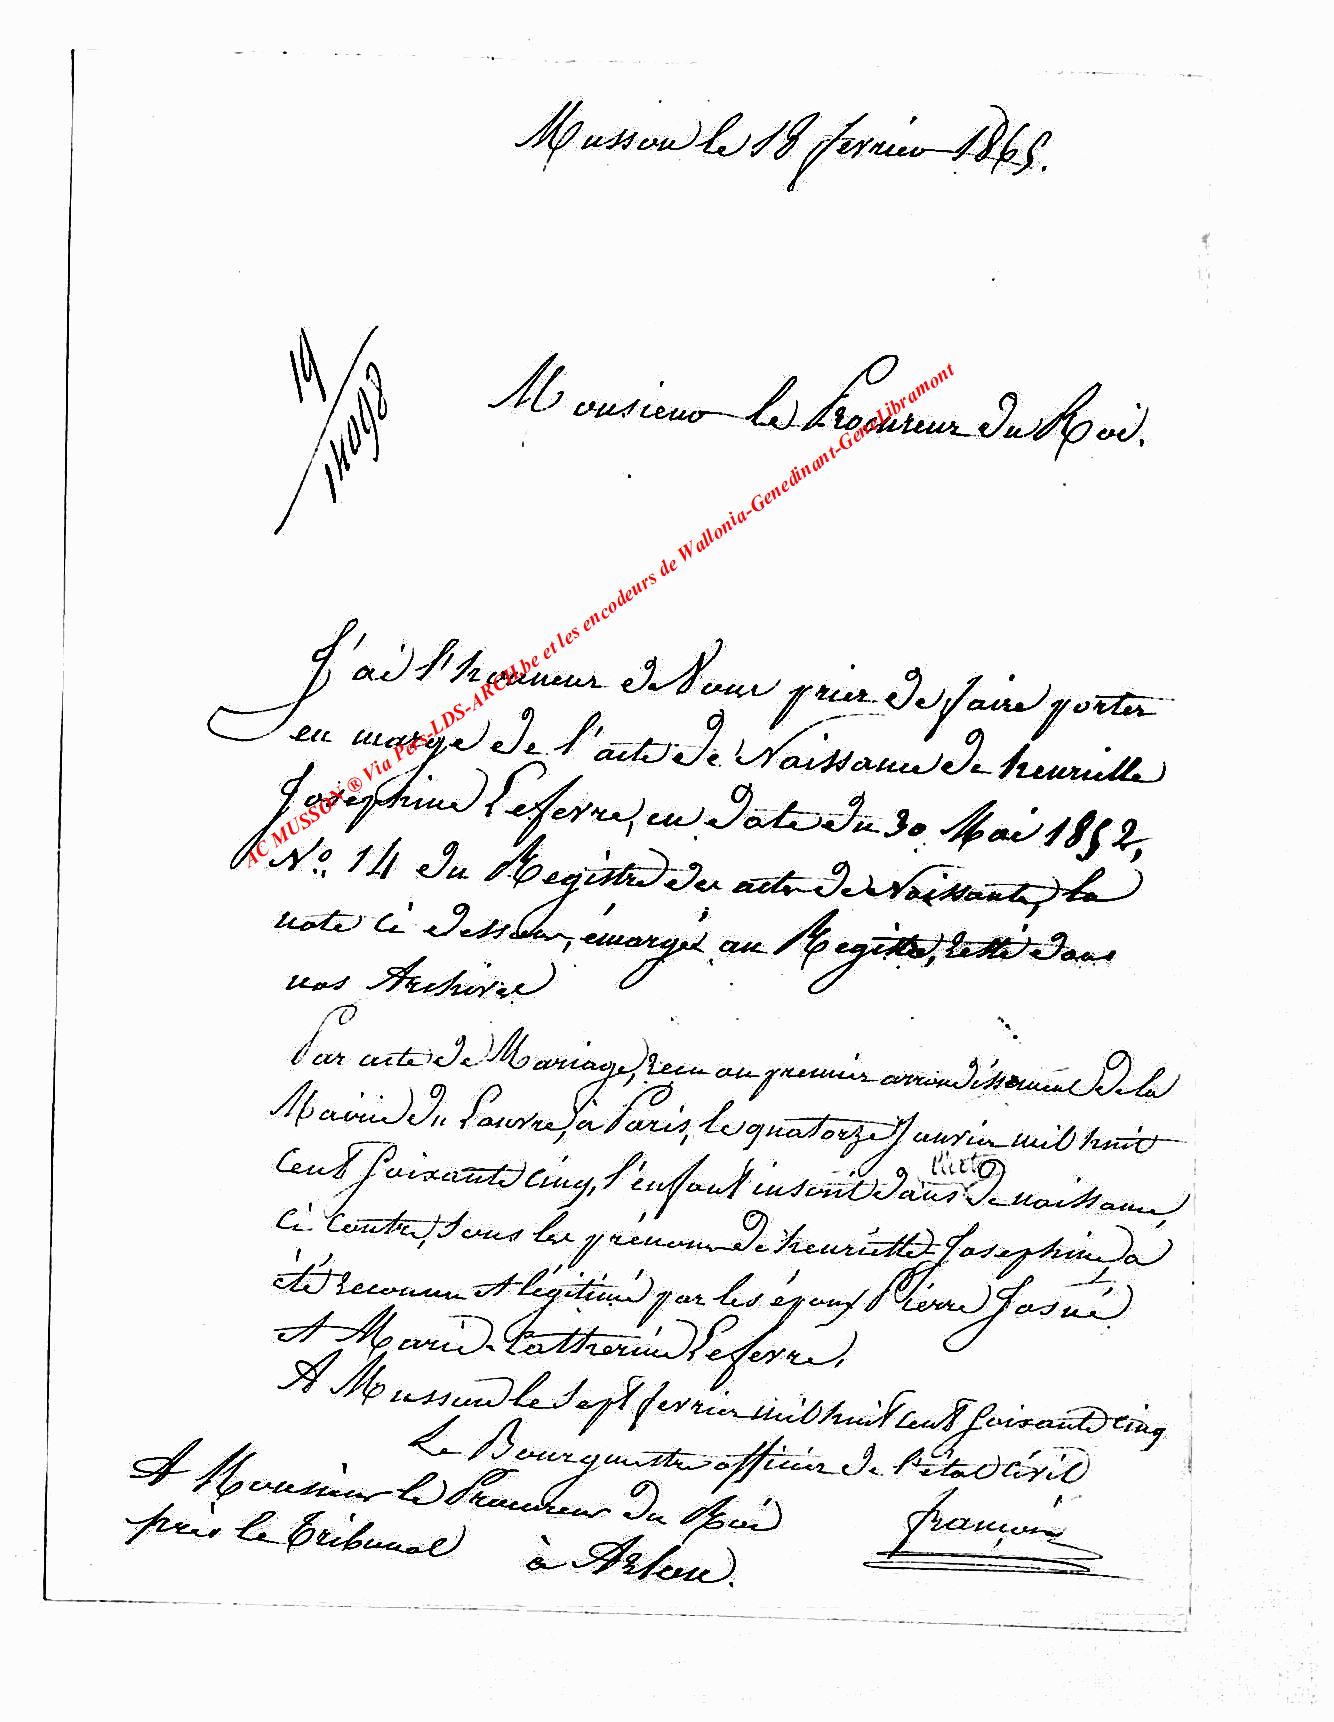 Musson le 18 fevrier 1865.
19
14098
Monsieur le Procureur du Roi.
J'ai l'honneur de Vous prier de faire porter
en marge de l'acte de Naissance de henriette
Josephine Lefevre, en date du 30 Mai 1852,
No. 14 du Registre des actes de Naissante, la
note ci dessous, émargée au Registre, resté dans
nos Archives
Par acte de Mariage, recu au premier arrondissement de la
Mairie du Louvre, à Paris, le quatorze Janvier mil huit
cent soixante cinq, l'enfant inscrit dans l'acte de naissance,
ci contre, sous les prénoms de henriette Josephine, a
été reconnu et légitimé par les époux Pierre Josué
et Marie-Catherine Lefevre.
A Musson le sept fevrier mil huit cent soixante cinq
Le Bourgmestre officier de l'état civil
françois
A Monsieur le Procureur du Roi
près le Tribunal à Arlon.
AC MUSSON ® Via Pers-LDS-ARCH.be et les encodeurs de Wallonia-Genedinant-GeneLibramont